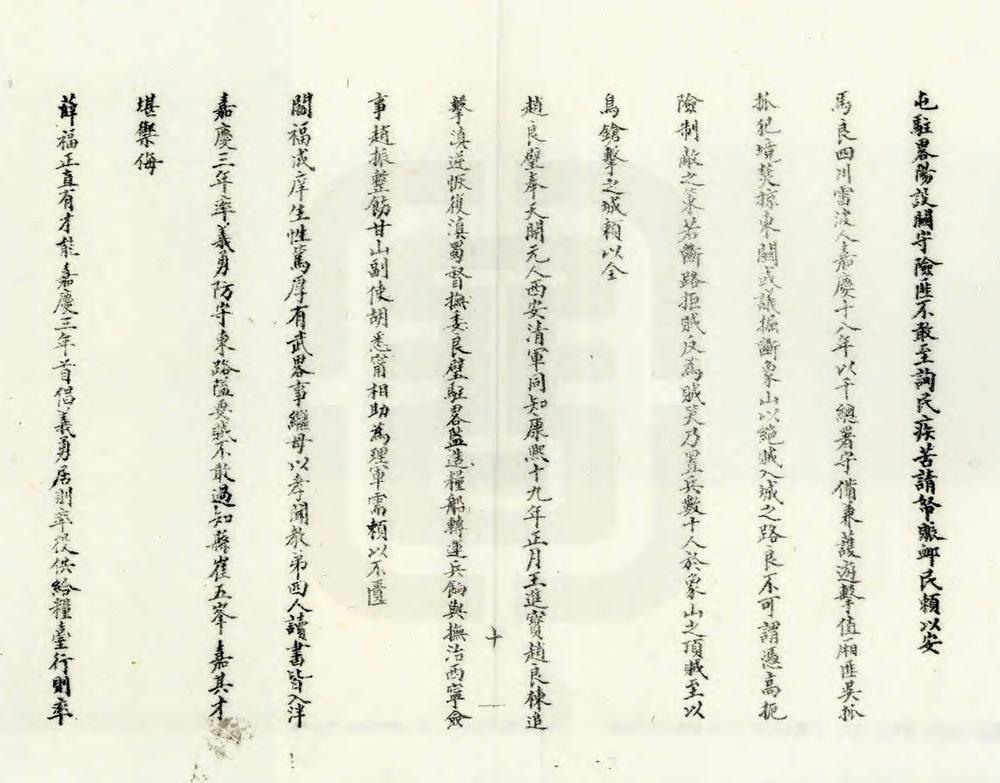 屯駐畧陽設關守險匪不敢至詢民疾苦請帑賑卹民賴以安
馬良四川雷波人嘉慶十八年以千總署守備兼護遊擊值廂匪吳抓
抓犯境焚掠東關或議掘斷象山以絕賊入城之路良不可謂憑高扼
險制敵之策若斷路拒賊反為賊笑乃置兵數十人於象山之頂賊至以
鳥鎗擊之城賴以全
趙良璧奉天開元人西安清軍同知康熙十九年正月王進寶趙良棟追
擊滇逆恢復滇蜀督撫委良璧駐畧監造糧船轉運兵餉與撫治西寧僉
事趙振整飭甘山副使胡悉甯相助為理軍需賴以不匱
閻福成庠生性篤厚有武畧事繼母以孝聞教弟四人讀書皆入泮
嘉慶三年率義勇防守東路隘要賊不敢過知縣崔五峯嘉其才
堪禦侮
薛福正直有才能嘉慶三年首倡義勇居則率役供給糧臺行則率
十